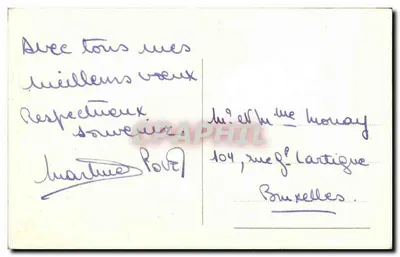 Avec tous mes
meilleurs voeux
Respectueux
souvenir
Martine
Mr et Mme Monay
104, rue Gl Lartigue
Bruxelles.